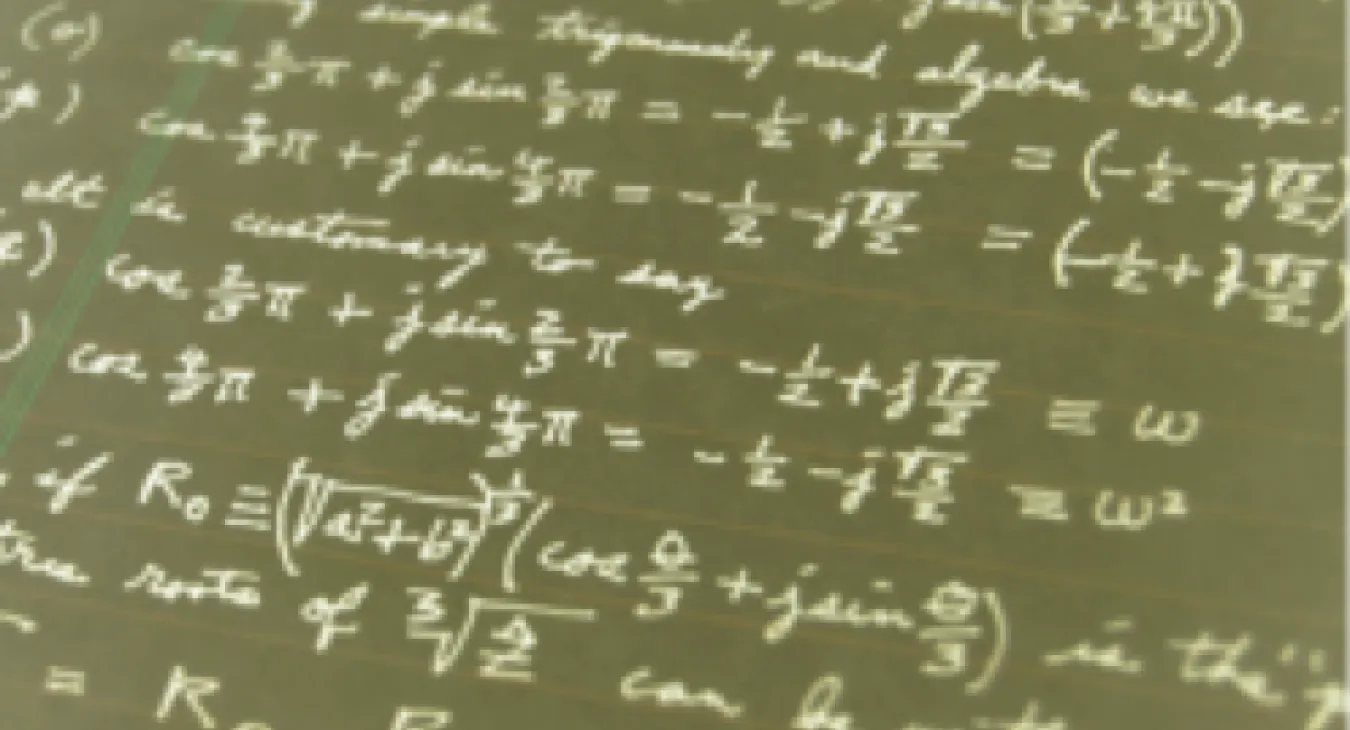 sin(
(a) simple trigonometry and algebra we see:
cos 2/3 π + j sin 2/3 π = - 1/2 + j √3/2 = (- 1/2 - j √3/2)
cos 4/3 π + j sin 4/3 π = - 1/2 - j √3/2 = (- 1/2 + j √3/2)
is customary to say
cos 2/3 π + j sin 2/3 π = - 1/2 + j √3/2 ≡ ω
cos 4/3 π + j sin 4/3 π = - 1/2 - j √3/2 ≡ ω²
if R₀ ≡ (√(a²+b²))^(1/3) (cos θ/3 + j sin θ/3) is the
roots of ∛ can be
= R₀